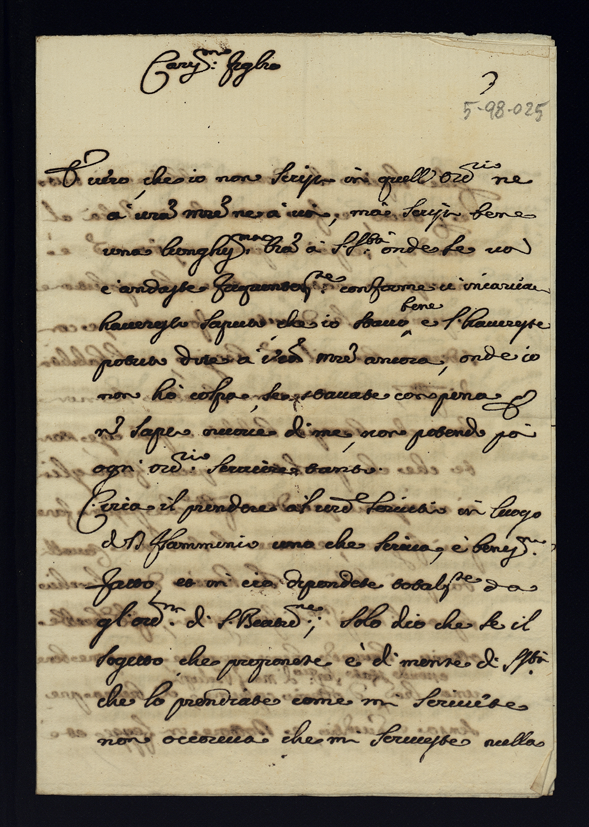 Cariss.mo figlio
5-98-025
È vero, che io non scrissi in quell'ord.rio ne
à vr̃a mr̃e ne à voi, mà scrissi bene
una longhiss.ma à S. onde se voi
c'andaste conforme v'incaricai
havereste saputo che io stavo bene e l'havereste
potuto dire à vr̃a mr̃e ancora, onde io
non hò colpa, se stavate con pena p
nõ saper nuove di me, non potendo poi
ogni ord.rio scrivere tanto.
Circa il prendere al vr̃o servitio in luogo
di D. Flamminio uno che scriva, è beniss.mo
fatto, et in ciò dipendete totalm.te da
gl'ord.ni di S. ; solo dico che se il
sogetto che proponete è di mente di S.
che lo prendiate come mi scrivete
non occorreva che mi scriveste nulla